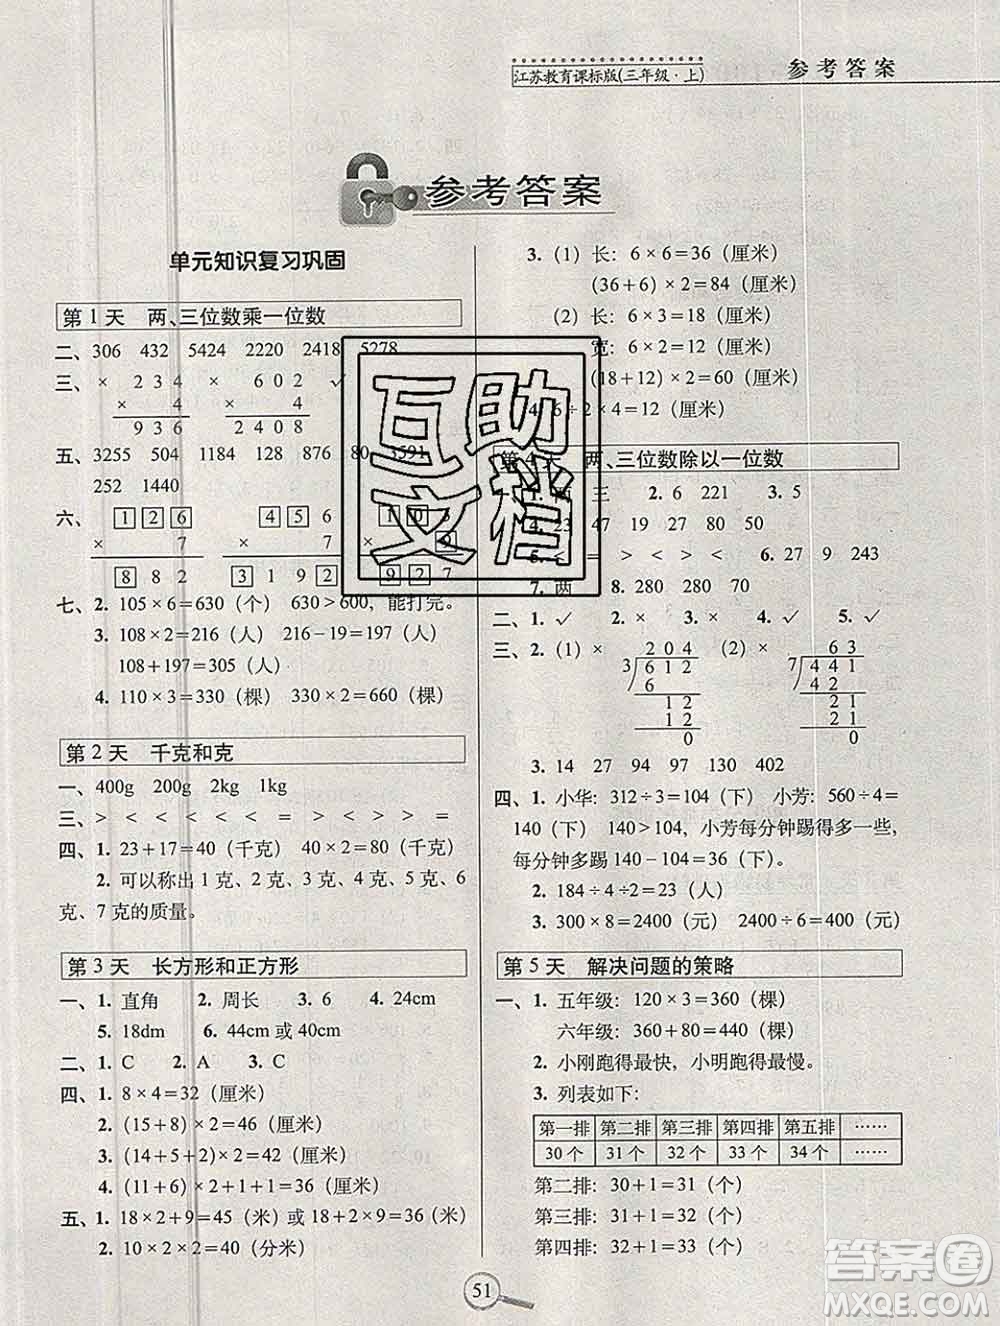 江苏教育课标版(三年级·上) 参考答案
参考答案
单元知识复习巩固
第1天 两、三位数乘一位数
二、306 432 5424 2220 2418 5278
三、× 234 × 602 ✓
× 4 × 4
936 2408
五、3255 504 1184 128 876 80 3591
252 1440
六、126 456 103
× 7 × 7 × 9
882 3192 927
七、2. 105×6=630（个） 630>600，能打完。
3. 108×2=216（人） 216-19=197（人）
108+197=305（人）
4. 110×3=330（棵） 330×2=660（棵）
第2天 千克和克
一、400g 200g 2kg 1kg
三、> < < < < < = > < > > > =
四、1. 23+17=40（千克） 40×2=80（千克）
2. 可以称出1克、2克、3克、4克、5克、6
克、7克的质量。
第3天 长方形和正方形
一、1. 直角 2. 周长 3. 6 4. 24cm
5. 18dm 6. 44cm或40cm
二、1. C 2. A 3. C
四、1. 8×4=32（厘米）
2. (15+8)×2=46（厘米）
3. (14+5+2)×2=42（厘米）
4. (11+6)×2+1+1=36（厘米）
五、1. 18×2+9=45（米）或18+2×9=36（米）
2. 10×2×2=40（分米）
3. (1) 长：6×6=36（厘米）
(36+6)×2=84（厘米）
(2) 长：6×3=18（厘米）
宽：6×2=12（厘米）
(18+12)×2=60（厘米）
4. 6÷2×4=12（厘米）
第4天 两、三位数除以一位数
一、1. 两 三 2. 6 221 3. 5
4. 23 47 19 27 80 50
5. < = > < > < 6. 27 9 243
7. 两 8. 280 280 70
二、1. ✓ 2. × 3. × 4. ✓ 5. ✓
三、2. (1) × 204 (2) × 63
3 612 7 441
6 42
12 21
12 21
0 0
3. 14 27 94 130 402
四、1. 小华：312÷3=104（下） 小芳：560÷4=
140（下） 140>104，小芳每分钟踢得多一些，
每分钟多踢140-104=36（下）
2. 184÷4÷2=23（人）
3. 300×8=2400（元） 2400÷6=400（元）
第5天 解决问题的策略
一、1. 五年级：120×3=360（棵）
六年级：360+80=440（棵）
2. 小刚跑得最快，小明跑得最慢。
3. 列表如下：
第一排 第二排 第三排 第四排 第五排 ……
30个 31个 32个 33个 34个 ……
第二排：30+1=31（个）
第三排：31+1=32（个）
第四排：32+1=33（个）
51
互助
文档
答案圈
MXQE.COM